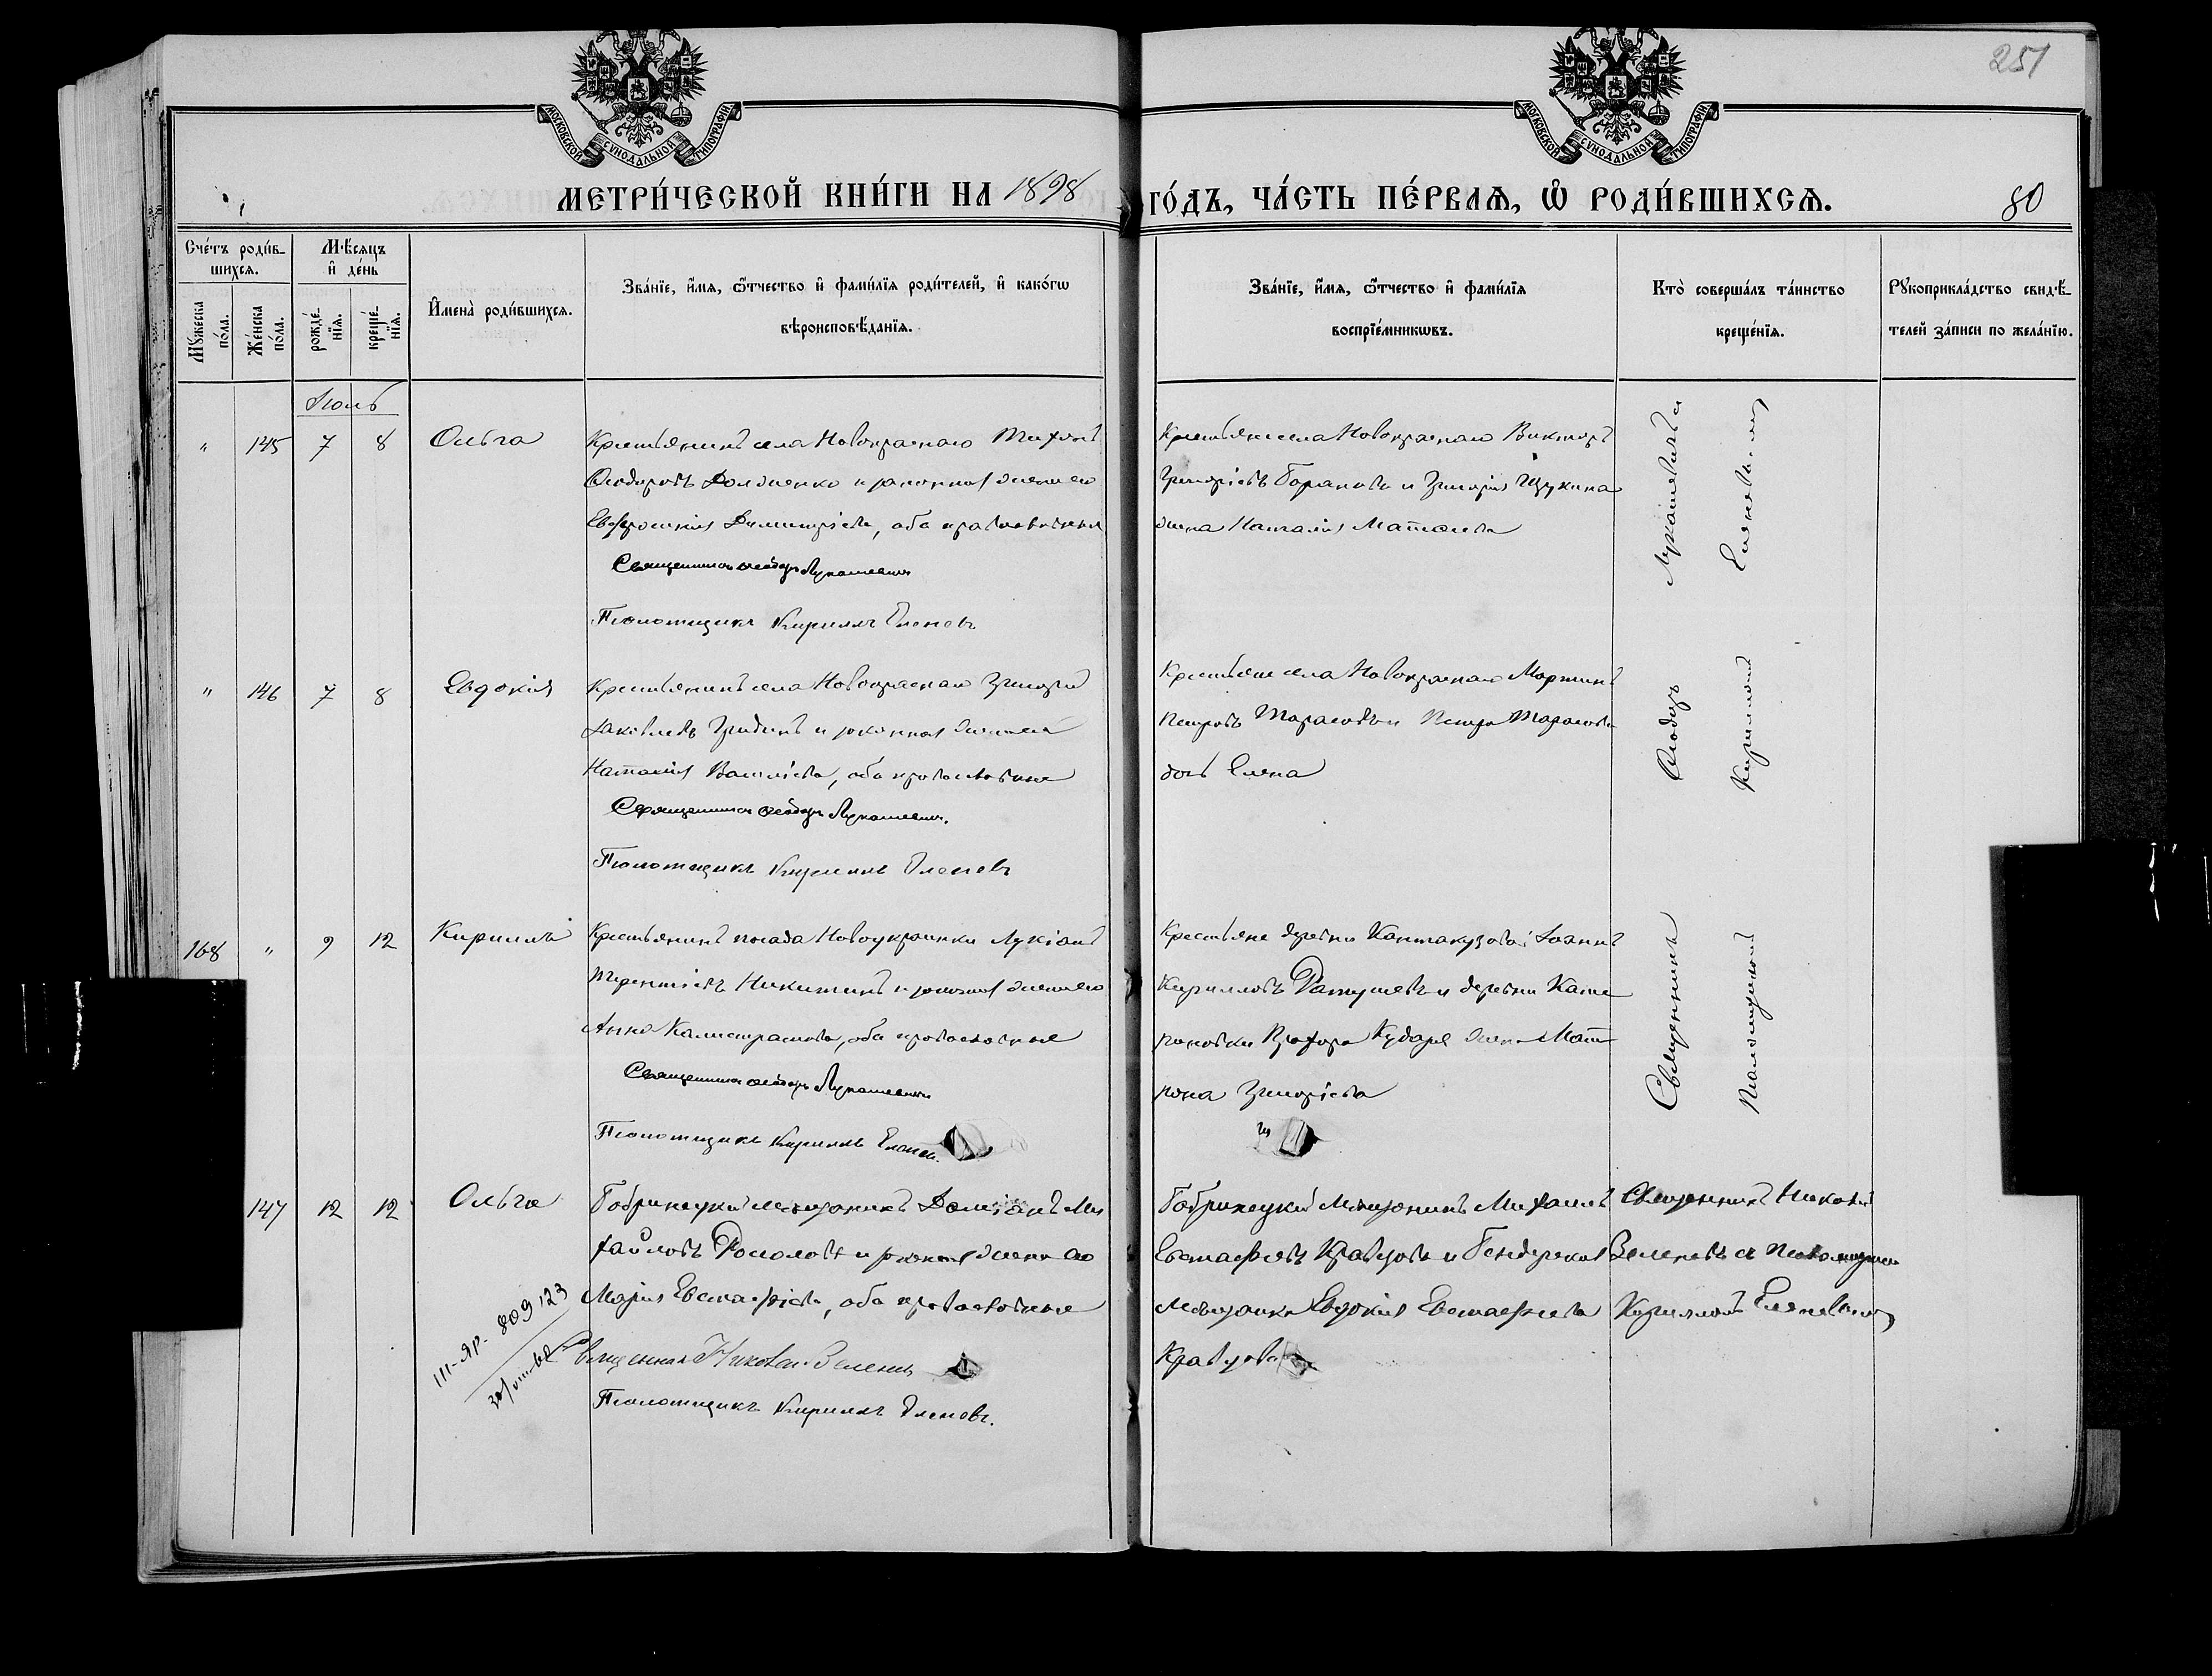 МОСКОВСКОЙ СѴНОДАЛЬНОЙ ТИПОГРАФІИ
МОСКОВСКОЙ СѴНОДАЛЬНОЙ ТИПОГРАФІИ
251
МЕТРИ́ЧЕСКОЙ КНИ́ГИ НА 1898 ГО́ДЪ, ЧА́СТЬ ПЕ́РВАѦ, Ѡ҆ РОДИ́ВШИХСѦ.
80
Сче́тъ роди́в-
шихсѧ.
Мѣ́сѧцъ
и҆ де́нь
Мꙋ́жеска по́ла.
Же́нска по́ла.
рожде́-нїѧ.
креще́-нїѧ.
И҆мена̀ роди́вшихсѧ.
Зва́нїе, и҆́мѧ, ѻ҆́тчество и҆ фами́лїѧ роди́телей, и҆ како́гѡ
вѣроисповѣ́данїѧ.
Зва́нїе, и҆́мѧ, ѻ҆́тчество и҆ фами́лїѧ
воспрїе́мникѡвъ.
Кто̀ соверша́лъ та́инство
креще́нїѧ.
Рꙋкоприкла́дство свидѣ́-
телей за́писи по жела́нїю.
Іюль
" 145 7 8 Ольга
Крестьянинъ села Новокраснаго Тихонъ
Ѳеодоровъ Долженко и законная жена его
Евфросинія Димитріева, оба православные
Священникъ Ѳеодоръ Лукашевичъ
Псаломщикъ Кириллъ Еленевъ
Крестьяне села Новокраснаго Викторъ
Григоріевъ Барановъ и Григорія Щукина
жена Наталія Матвеева
" 146 7 8 Евдокія
Крестьянинъ села Новокраснаго Григорій
Іаковлевъ Гридинъ и законная жена его
Наталія Васильева, оба православные
Священникъ Ѳеодоръ Лукашевичъ.
Псаломщикъ Кириллъ Еленевъ
Крестьяне села Новокраснаго Мартинъ
Петровъ Тарасовъ и Петра Тарасова
дочь Елена
168 " 9 12 Кириллъ
Крестьянинъ посада Новоукраинки Лукіанъ
Терентіевъ Никитинъ и законная жена его
Анна Калистратова, оба православные
Священникъ Ѳеодоръ Лукашевичъ
Псаломщикъ Кириллъ Еленевъ.
Крестьяне деревни Кантакузовой Іоаннъ
Кирилловъ и деревни Кате
риновки Кударя жена Мат
рона Григоріева
Священникъ Ѳеодоръ Лукашевичъ и
Псаломщикъ Кириллъ
147 12 12 Ольга
Бобринецкій мещанинъ Даміанъ Ми
хайловъ и законная жена его
Марія Евстафіева, оба православные
Священникъ Николай Зеленевъ
Псаломщикъ Кириллъ Еленевъ.
Бобринецкій Мещанинъ Михаилъ
Евстафіевъ Кравцовъ и Бендерская
Мещанка Евдокія Евстафіева
Кравцова
Священникъ Николай
Зеленевъ и Псаломщикъ
Кириллъ
III-ЯР- 809123